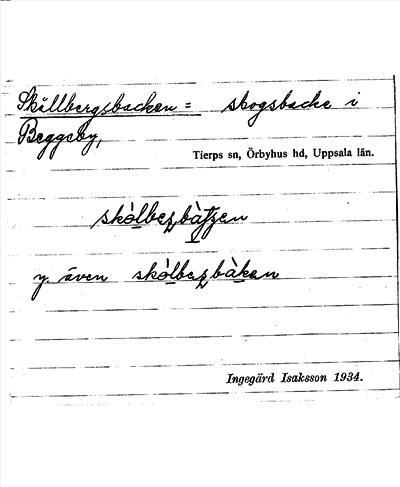 Skållbergsbacken = skogsbacke i
Beggeby,
Tierps sn, Örbyhus hd, Uppsala län.
y. även
Ingegärd Isaksson 1934.